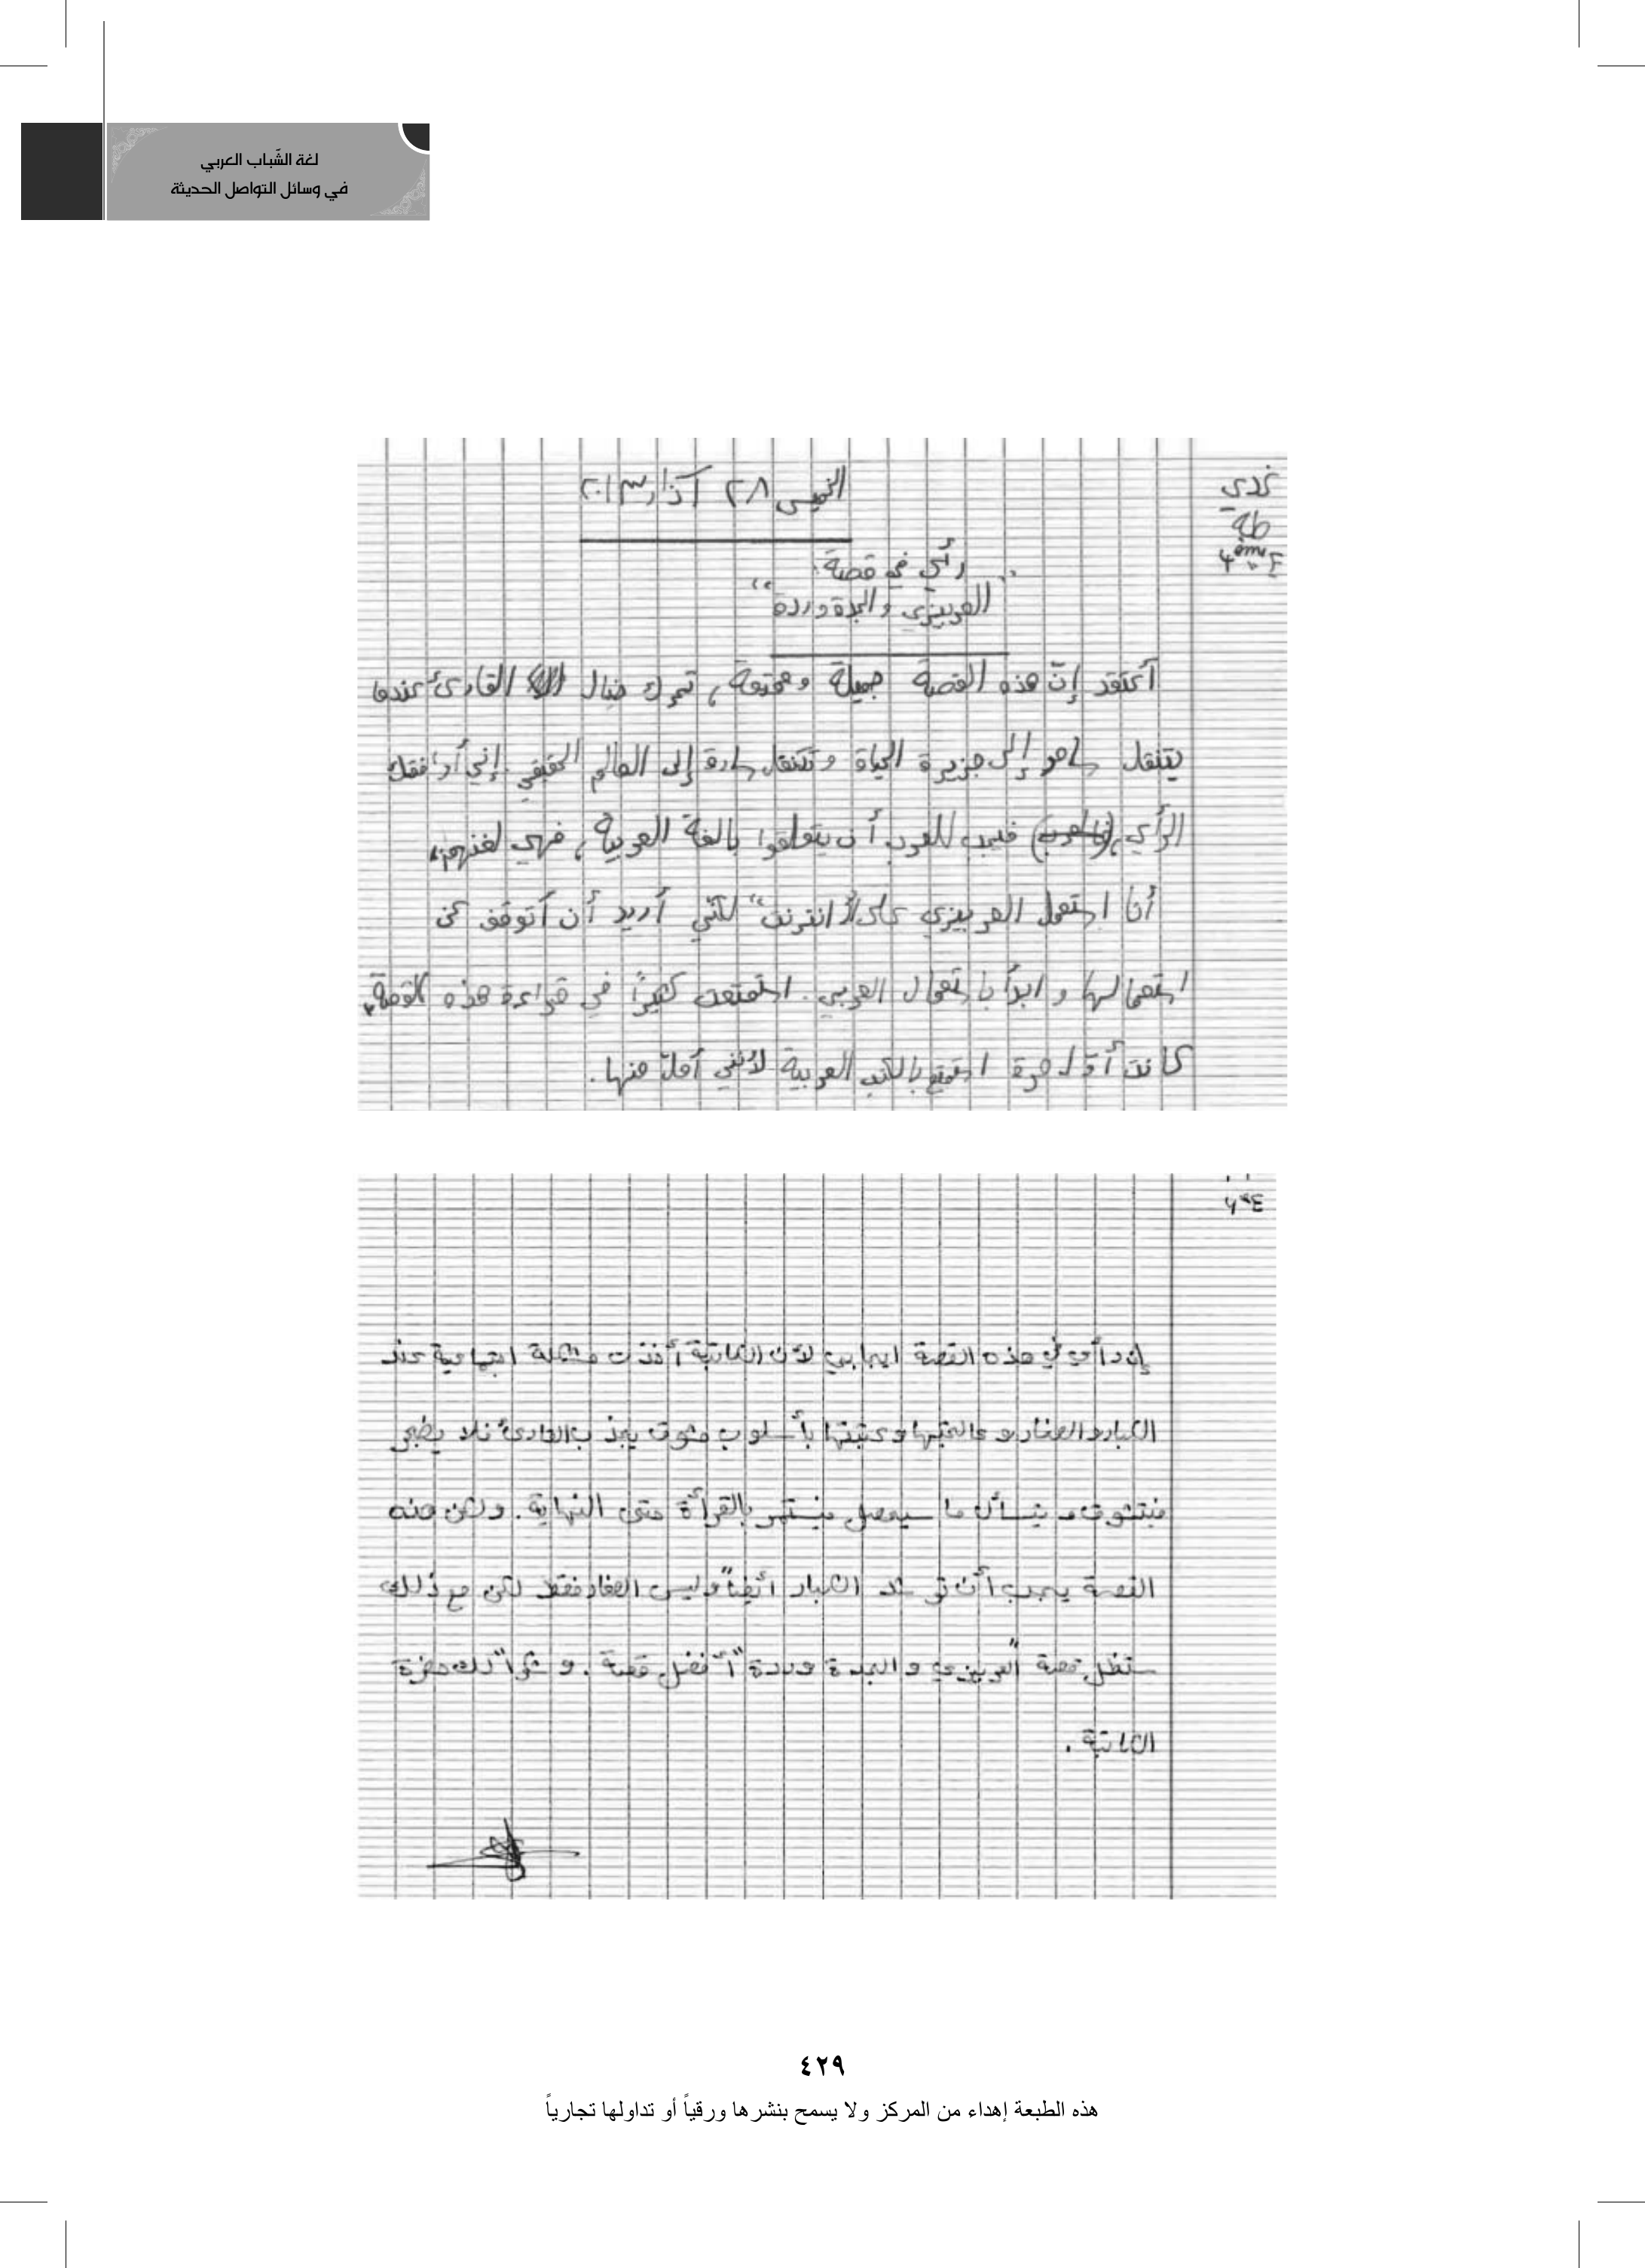 لغة الشّباب العربي
في وسائل التواصل الحديثة
ندى
طه
4ème
الخميس ٢٨ آذار ٢٠١٣
رأي في قصة:
"العربيزي والجدة وردة"
أعتقد إنّ هذه القصة جميلة وممتعة، تحرك خيال القارئ عندما
يتنقل إلى جزيرة الحياة و إلى العالم الحقيقي. إني أوافقك
الرأي، فيجب للعرب أن يتعلقوا بالغة العربية، فهي لغتهم.
أنا استعمل العربيزي على "انترنت" لكنّي أريد أن أتوقف عن
استعمالها و ابدأ باستعمال العربي. استمتعت كثيرًا في قراءة هذه القصة،
كانت أوّل مرة استمتع بالكتب العربية لأنني أملّ منها.
إن رأي في هذه القصة ايجابي لأن الكاتبة أخذت مشكلة اجتماعية عند
الكبار و الصغار و عالجتها و كتبتها بأسلوب مشوق يجذب القارئ فلا يضجر
فيتشوق و يتسأل ما سيحصل فيستمر بالقرأة حتى النهاية. ولكن هذه
القصة يجب أن الكبار أيضاً وليس الصغار فقط لكن مع ذلك
ستظل قصة "العربيزي و الجدة وردة" أفضل قصة. و شكراً لك حضرة
الكاتبة.
٤٢٩
هذه الطبعة إهداء من المركز ولا يسمح بنشرها ورقياً أو تداولها تجارياً